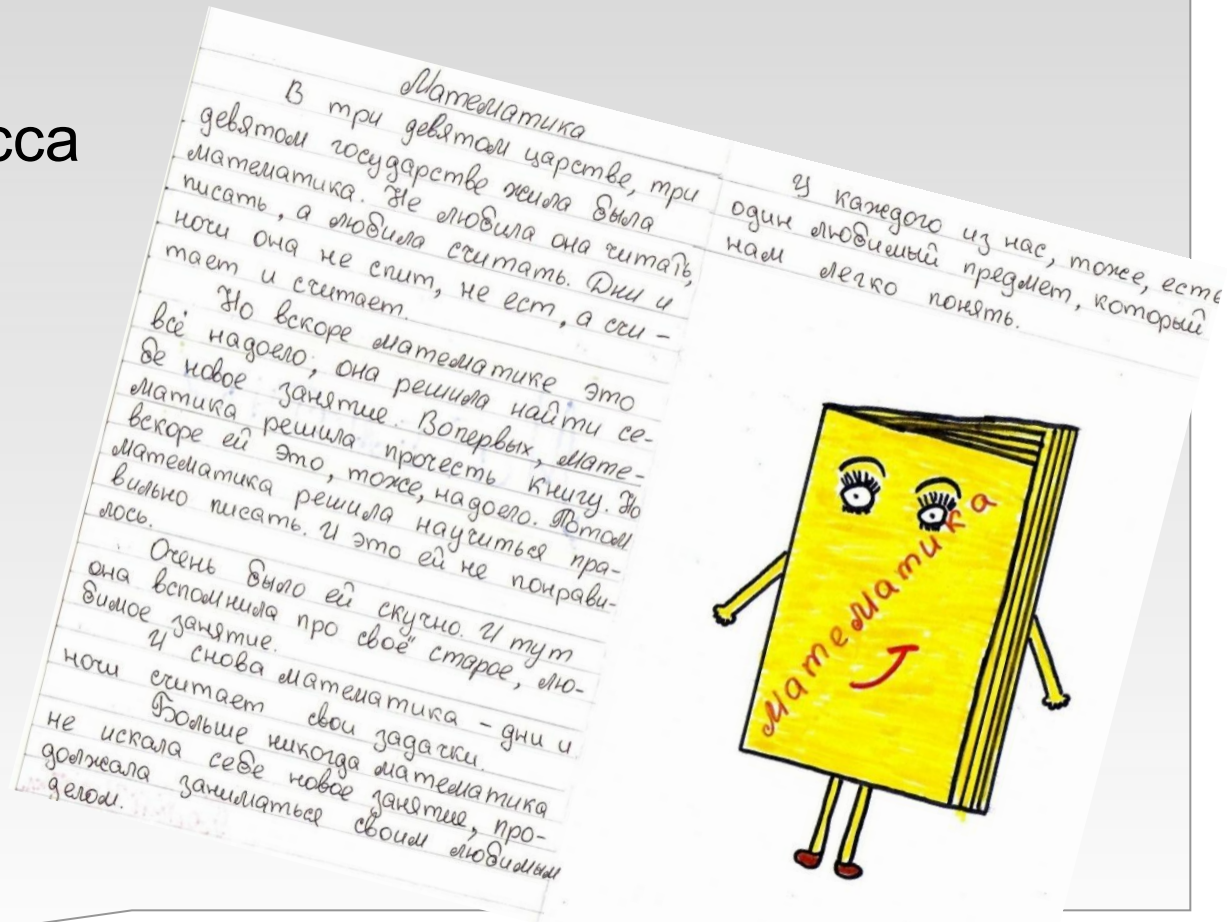 сса
Математика
В три девятом царстве, три
девятом государстве жила была
математика. Не любила она читать,
писать, а любила считать. Дни и
ночи она не спит, не ест, а счи-
тает и считает.
Но вскоре математике это
всё надоело; она решила найти се-
бе новое занятие. Вопервых, мате-
матика решила прочесть книгу. Но
вскоре ей это, тоже, надоело. Потом
математика решила научиться пра-
вильно писать. И это ей не понрави-
лось.
Очень было ей скучно. И тут
она вспомнила про своё старое, лю-
бимое занятие.
И снова математика - дни и
ночи считает свои задачки.
Больше никогда математика
не искала себе новое занятие, про-
должала заниматься своим любимым
делом.
У каждого из нас, тоже, есть
один любимый предмет, который
нам легко понять.
Математика